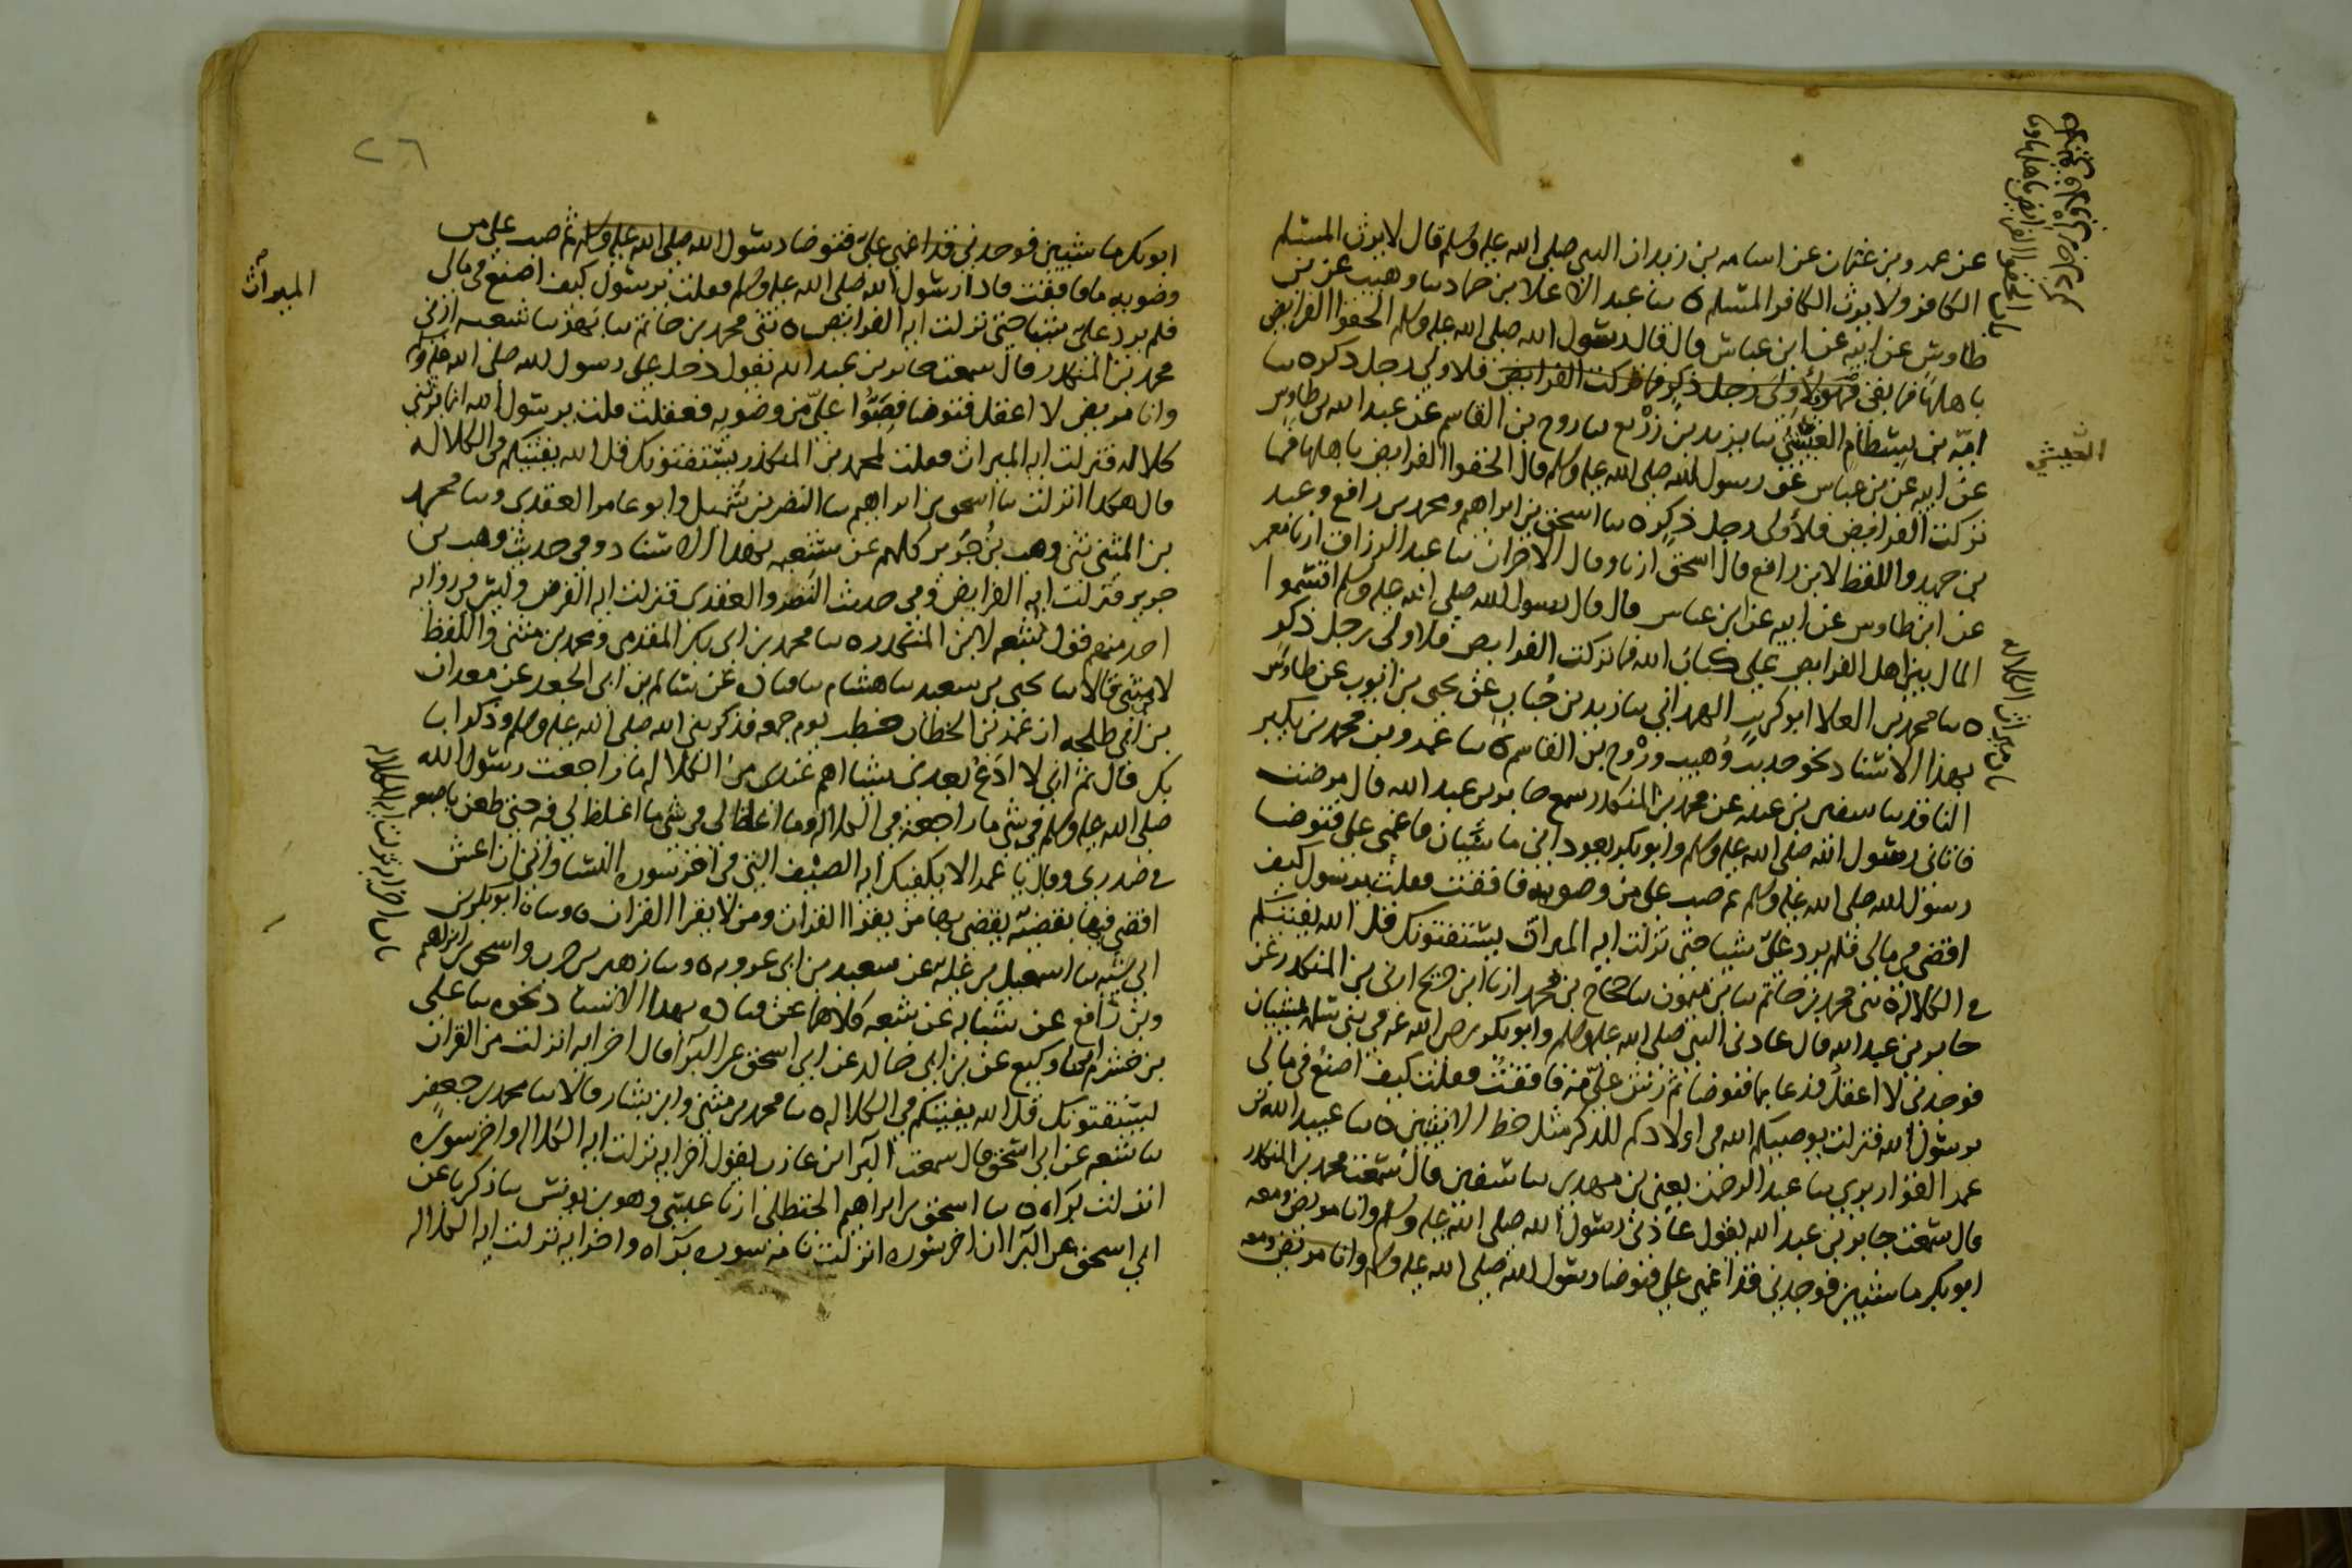 عن عمرو بن عثمان عن اسامه بن زيد ان النبي صلى الله عليه وسلم قال لا يرث المسلم
الكافر ولا يرث الكافر المسلم ه سا عبد الاعلا بن حماد سا وهيب عن بن
طاوس عن ابيه عن ابن عباس قال قال رسول الله صلى الله عليه وسلم الحقوا الفرايض
باهلها فما بقى فهو لأولى رجل ذكر فما تركت الفرايض فلاولى رجل ذكر ه سا
اميّه بن بسطام العيشي سا يزيد بن زريع سا روح بن القاسم عن عبد الله بن طاوس
عن ابيه عن بن عباس عن رسول الله صلى الله عليه وسلم قال الحقوا الفرايض باهلها فما
تركت الفرايض فلأولى رجل ذكر ه سا اسحق بن ابراهيم ومحمد بن رافع وعبد
بن حميد واللفظ لابن رافع قال اسحق ارنا وقال الاخران سا عبد الرزاق ارنا معمر
عن ابن طاوس عن ابيه عن ابن عباس قال قال رسول الله صلى الله عليه وسلم اقسموا
المال بين اهل الفرايض على كتاب الله فما تركت الفرايض فلاولى رجل ذكر
ه سا محمد بن العلا ابو كريب الهمداني سا زيد بن حُباب عن يحيى بن ايوب عن طاوس
بهذا الاسناد نحو حديث وُهيب ورَوْح بن القاسم ه سا عمرو بن محمد بن بكير
الناقد سا سفين بن عيينه عن محمد بن المنكدر سمع جابر بن عبد الله قال مرضت
فاتاني رسول الله صلى الله عليه وسلم وابو بكر يعود اني ماشيان فاغمي علي فتوضا
رسول الله صلى الله عليه وسلم ثم صب علي من وضويه فافقت فقلت يرسول كيف
اقضي في مالي فلم يرد عليّ شيا حتى نزلت ايه الميراث يستفتونك قل الله يفتيكم
في الكلاله ه ثني محمد بن حاتم سا بن ميمون سا حجاج بن محمد ارنا ابن جريج ارني بن المنكدر عن
جابر بن عبد الله قال عادني النبي صلى الله عليه وسلم وابو بكر رضي الله عنه في بني سلمه يمشيان
فوجدني لا اعقل فدعا بما فتوضا ثم رش عليّ منه فافقت فقلت كيف اصنع في مالي
يرسول الله فنزلت يوصيكم الله في اولادكم للذكر مثل حظ الانثيين ه سا عبيد الله بن
عمر القواريري سا عبد الرحمن يعني بن مهدي سا سفين قال سمعت محمد بن المنكدر
قال سمعت جابر بن عبد الله يقول عادني رسول الله صلى الله عليه وسلم وانا مريض ومعه
ابو بكر ماشيين فوجدني قد اغمي علي فتوضا رسول الله صلى الله عليه وسلم وانا مريض ومعه
باب الحقوا الفرايض باهلها
العيشي
باب ميراث الكلاله
٢٦
ابو بكر ماشيين فوجدني قد اغمي عليّ فتوضا رسول الله صلى الله عليه وسلم ثم صب علي من
وضويه فافقت فاذا رسول الله صلى الله عليه وسلم فقلت يرسول كيف اصنع في مالي
فلم يرد عليّ شيا حتى نزلت ايه الفرايض ه ثني محمد بن حاتم سا بهز سا شعبه ارني
محمد بن المنكدر قال سمعت جابر بن عبد الله يقول دخل علي رسول الله صلى الله عليه وسلم
وانا مريض لا اعقل فتوضا فصَبُّوا عليّ من وضويه فعقلت فقلت يرسول الله انما يرثني
كلاله فنزلت ايه الميراث فقلت لمحمد بن المنكدر يستفتونك قل الله يفتيكم في الكلاله
قال هكذا انزلت سا اسحق بن ابراهيم سا النضر بن شُميل وابو عامر العقدي وسا محمد
بن المثنى ثنى وهب بن جرير كلهم عن شعبه بهذا الاسناد وفي حديث وهب بن
جرير فنزلت ايه الفرايض وفي حديث النضر والعقدي فنزلت ايه الفرض وليس في روايه
احد منهم قول شعبه لابن المنكدر ه سا محمد بن ابي بكر المقدمي ومحمد بن مثنى واللفظ
لابن مثنى قالا سا يحيى بن سعيد سا هشام سا قتاده عن سالم بن ابي الجعد عن معدان
بن ابي طلحه ان عمر بن الخطاب خطب يوم جمعه فذكر نبي الله صلى الله عليه وسلم وذكر ابا
بكر قال ثم اني لا ادَعُ بعدي شيا اهم عندي من الكلاله ما راجعت رسول الله
صلى الله عليه وسلم في شي ما راجعته في الكلاله وما اغلظ لي في شي ما اغلظ لي فيه حتى طعن باصبعه
في صدري وقال يا عمر الا يكفيك ايه الصيف التي في اخر سوره النسا واني ان اعش
اقضي فيها بقضيّه يقضي بها من يقرا القران ومن لا يقرا القران ه وسا ابو بكر بن
ابي شيبه سا اسمعيل بن عليه عن سعيد بن ابي عروبه ه وسا زهير بن حرب واسحق بن ابراهيم
وبن رافع عن شبابه عن شعبه كلاهما عن قتاده بهذا الاسناد نحوه سا علي
بن خشرم انا وكيع عن بن ابي خالد عن ابي اسحق عن البَرآ قال اخر ايه انزلت من القران
يستفتونك قل الله يفتيكم في الكلاله ه سا محمد بن مثنى وابن بشار قالا سا محمد بن جعفر
سا شعبه عن ابي اسحق قال سمعت البرآ بن عازب يقول اخر ايه نزلت ايه الكلاله واخر سوره
انزلت برآه ه سا اسحق بن ابراهيم الحنظلي ارنا عيسى وهو بن يونس سا زكريا عن
ابي اسحق عن البرآ ان اخر سوره انزلت تامه سوره برآه واخر ايه نزلت ايه الكلاله
الميراث
باب اخر ايه نزلت ايه الكلاله